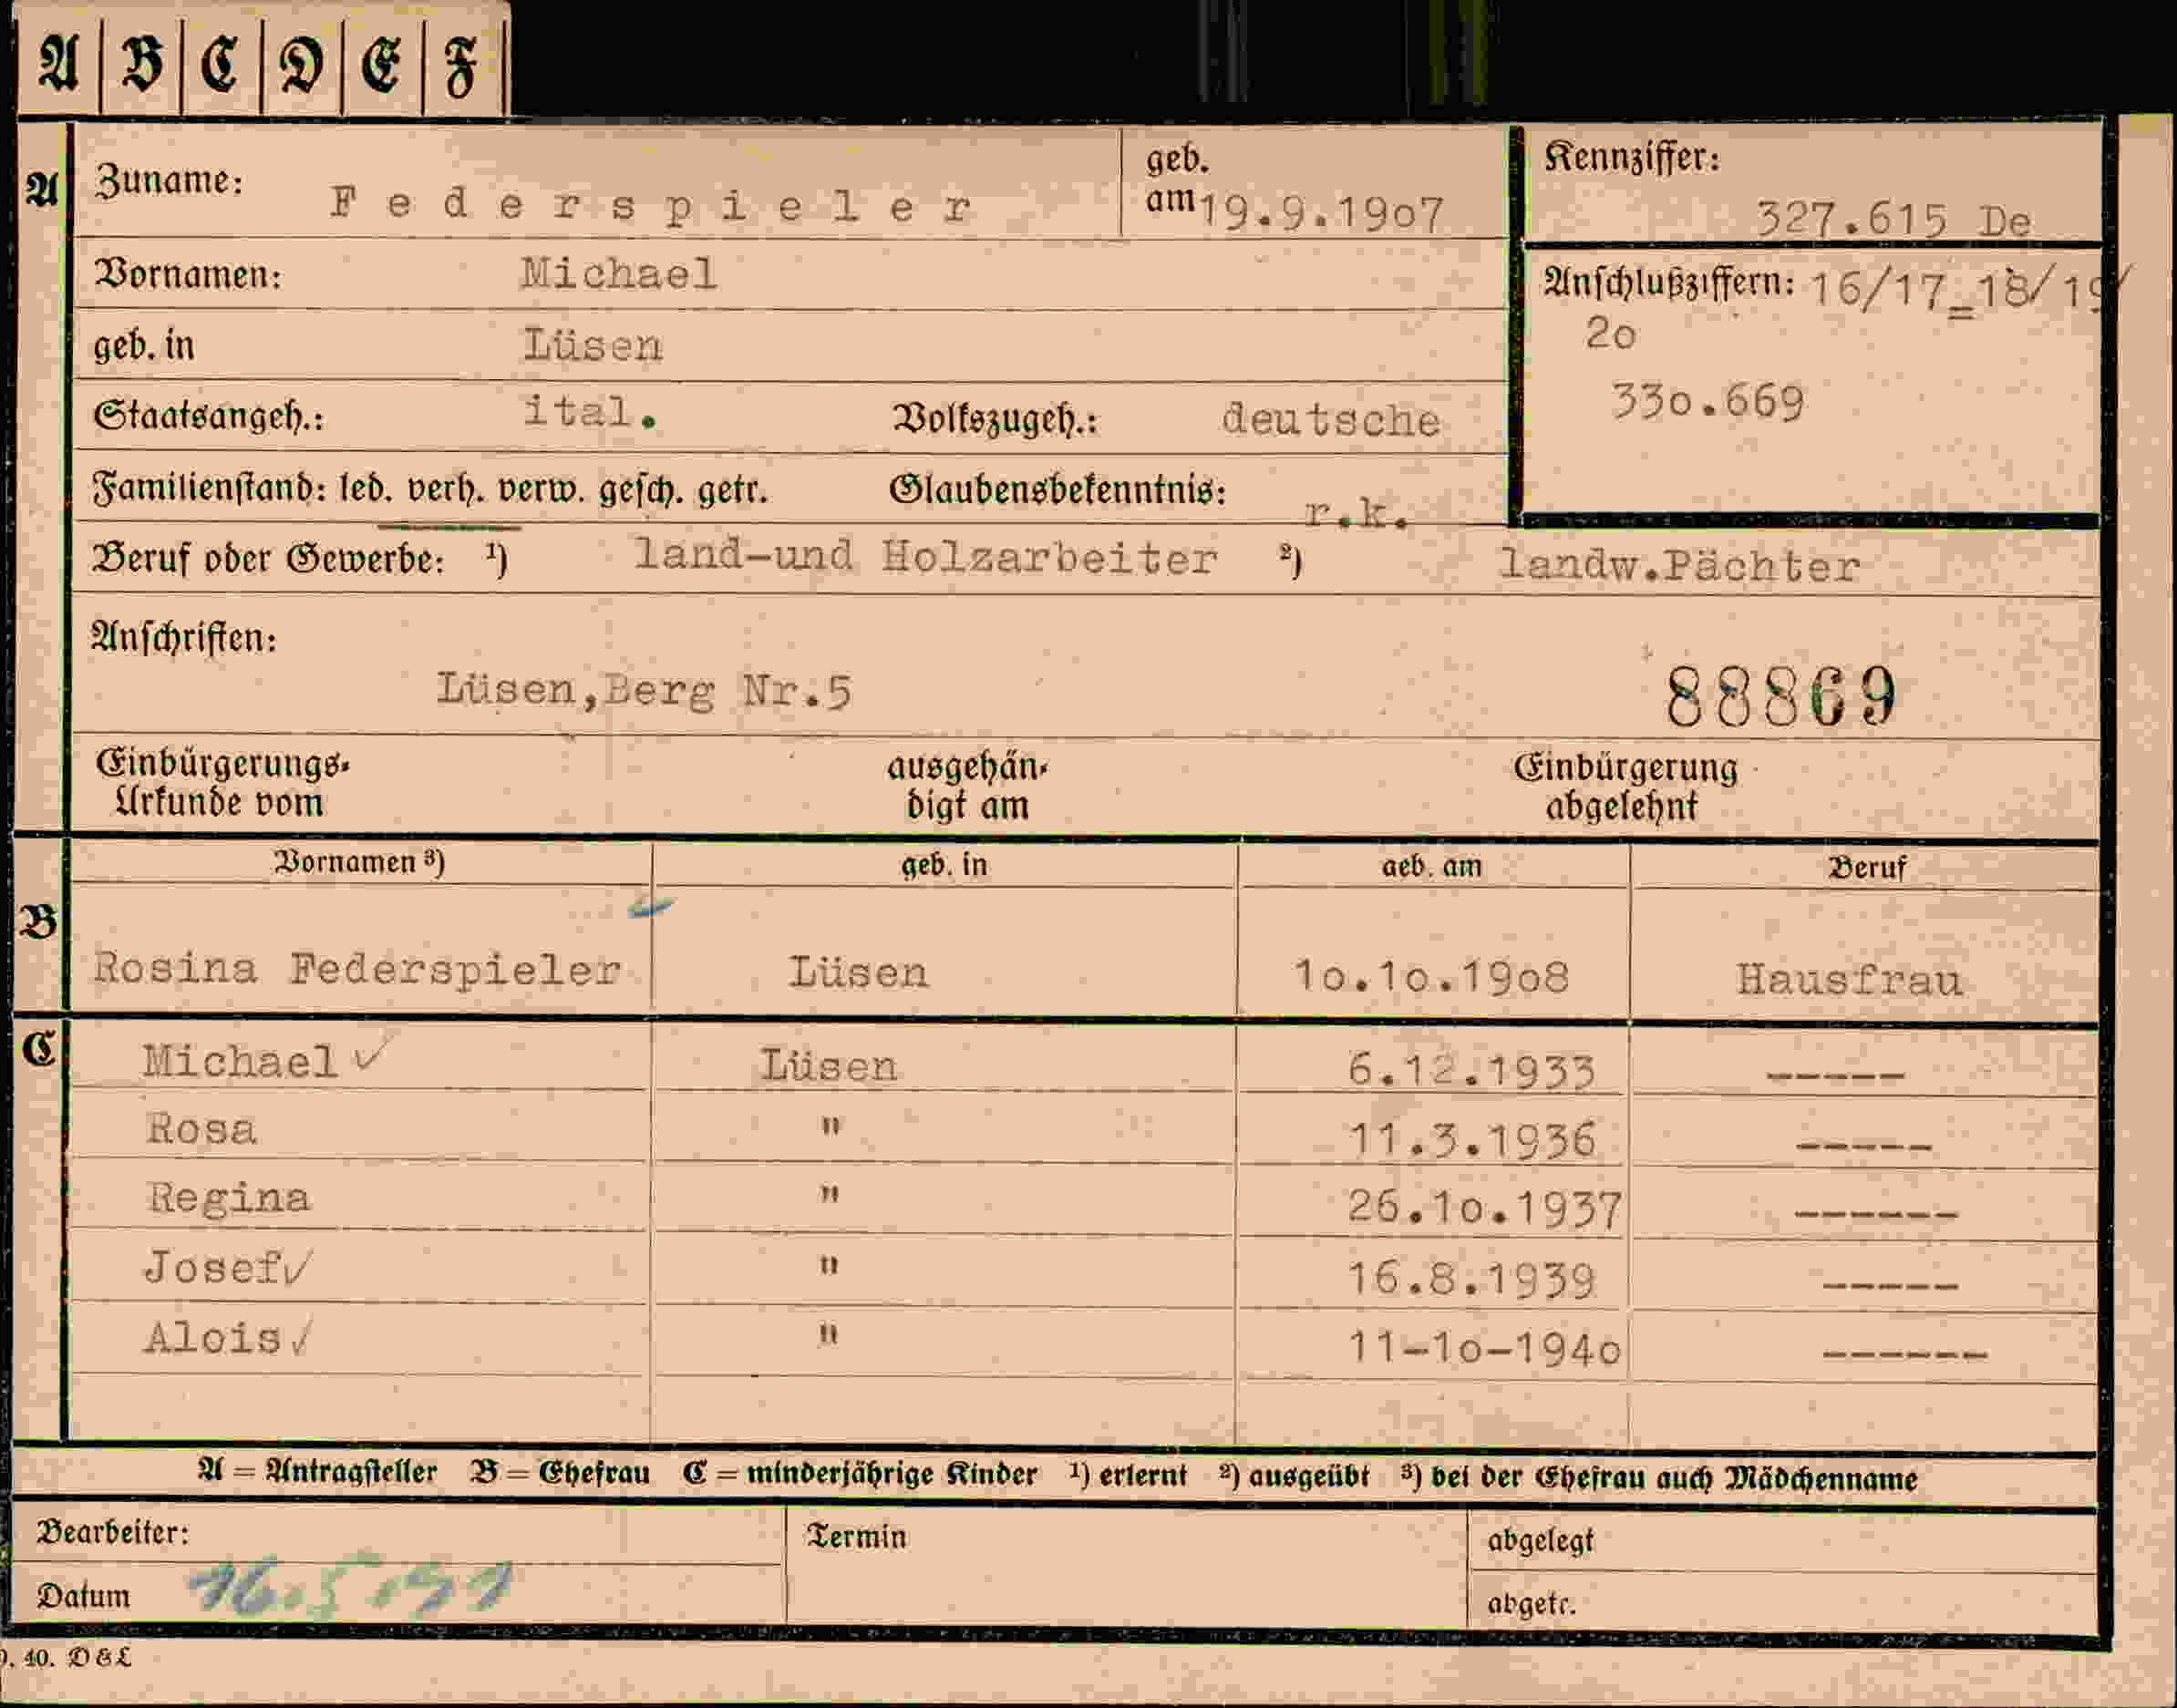 A B C D E F
A Zuname: Federspieler geb. am 19.9.1907 Kennziffer: 327.615 De
Vornamen: Michael Anschlußziffern: 16/17_18/19/
20
geb. in Lüsen
330.669
Staatsangeh.: ital. Volkszugeh.: deutsche
Familienstand: led. verh. verw. gesch. getr. Glaubensbekenntnis: r.k.
Beruf oder Gewerbe: ¹) land-und Holzarbeiter ²) landw.Pächter
Anschriften:
Lüsen,Berg Nr.5 88869
Einbürgerungs- ausgehän- Einbürgerung
Urkunde vom digt am abgelehnt
Vornamen ³) geb. in geb. am Beruf
B Rosina Federspieler Lüsen 10.10.1908 Hausfrau
C Michael ✓ Lüsen 6.12.1933 -----
Rosa " 11.3.1936 -----
Regina " 26.10.1937 ------
Josef ✓ " 16.8.1939 -----
Alois ✓ " 11-10-1940 ------
A = Antragsteller B = Ehefrau C = minderjährige Kinder ¹) erlernt ²) ausgeübt ³) bei der Ehefrau auch Mädchenname
Bearbeiter: Termin abgelegt
Datum 16.5.41 abgetr.
40. D&L